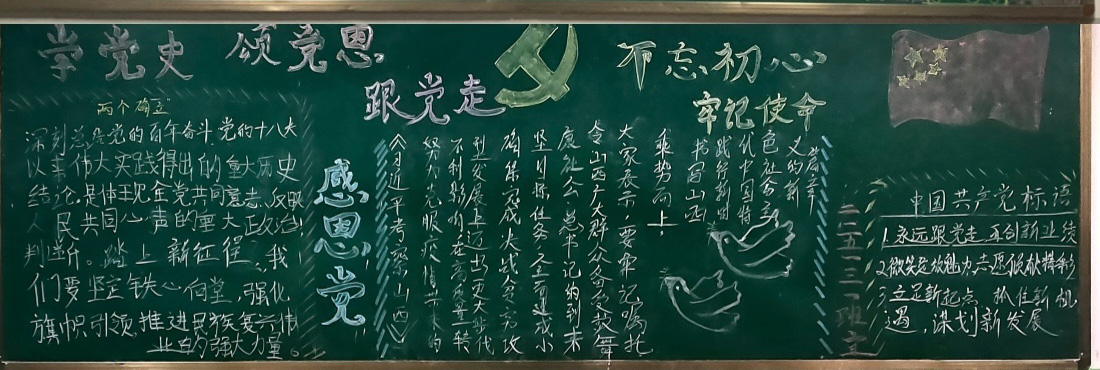 学党史 颂党恩
跟党走
不忘初心
牢记使命
两个确立"
深刻总结党的百年奋斗、党的十八大
以来伟大实践得出的重大历史
结论,是体现全党共同意志、反映
人民共同心声的重大政治
判断。踏上新征程,我
们要坚定铁心向党,强化
旗帜引领推进民族复兴伟
业的强大力量。
感恩党
《习近平考察山西》
努力克服疫情带来的
不利影响在高质量转
型发展上迈出更大步伐
确保完成决战贫方攻
坚目标任务全面建成小
康社会。总书记的到来
令山西广大群众备受鼓舞
大家表示,要牢记嘱托
乘势而上
书写山西
践行新时
代中国特
色社会主
义的新
篇章
二二五一三一班主
中国共产党标语
1.永远跟党走,再创新业绩
2.微笑绽放魅力,志愿倾献精彩
3.立足新起点,抓住新机
遇,谋划新发展